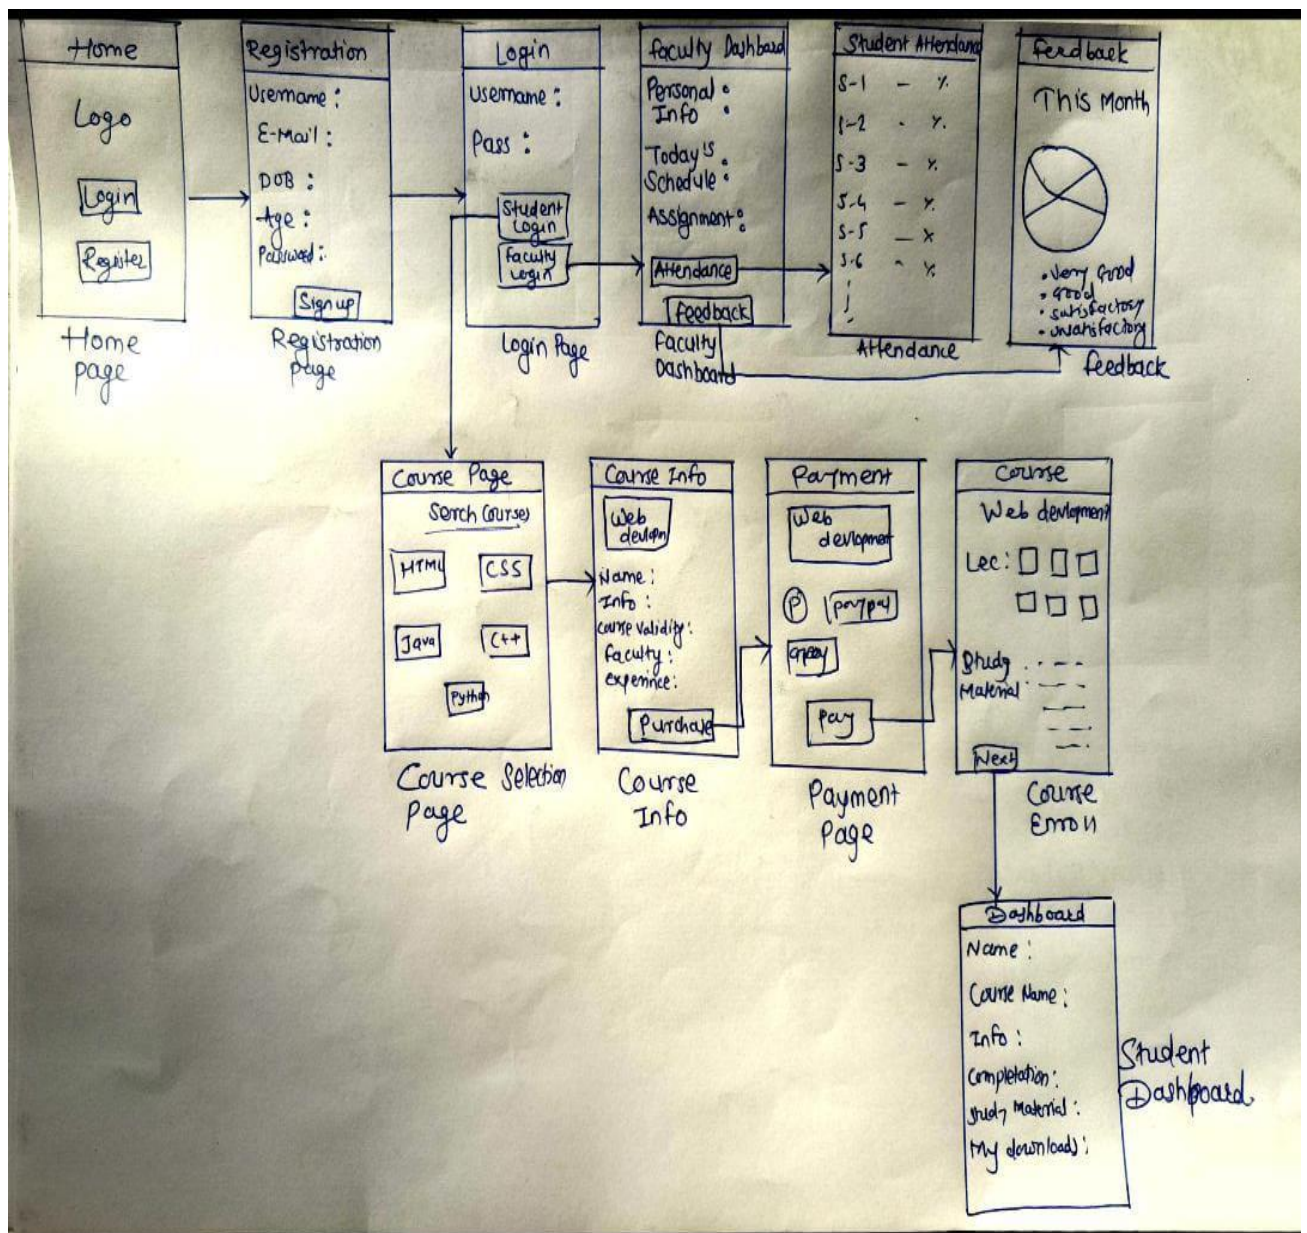 Home
Logo
Login
Register
Home
page
Registration
Username :
E-Mail :
DOB :
Age :
Password :
Sign up
Registration
page
Login
Username :
Pass :
Student
Login
Faculty
Login
Login Page
Faculty Dashboard
Personal :
Info :
Today's :
Schedule :
Assignment :
Attendance
Feedback
Faculty
Dashboard
Student Attendance
S-1 - %
S-2 - %
S-3 - %
S-4 - %
S-5 - %
S-6 - %
Attendance
Feedback
This Month
• Very Good
• Good
• satisfactory
• unsatisfactory
feedback
Course Page
Serch Courses
HTML
CSS
Java
C++
Python
Course Selection
Page
Course Info
Web
Name :
Info :
Course Validity :
faculty :
experince :
Purchase
Course
Info
Payment
Web
devlopment
P
paypal
gpay
Pay
Payment
Page
Course
Web devlopment
Lec :
Study
Material
Next
Course
Dashboard
Name :
Course Name :
Info :
Completation :
Study Material :
My downloads :
Student
Dashboard